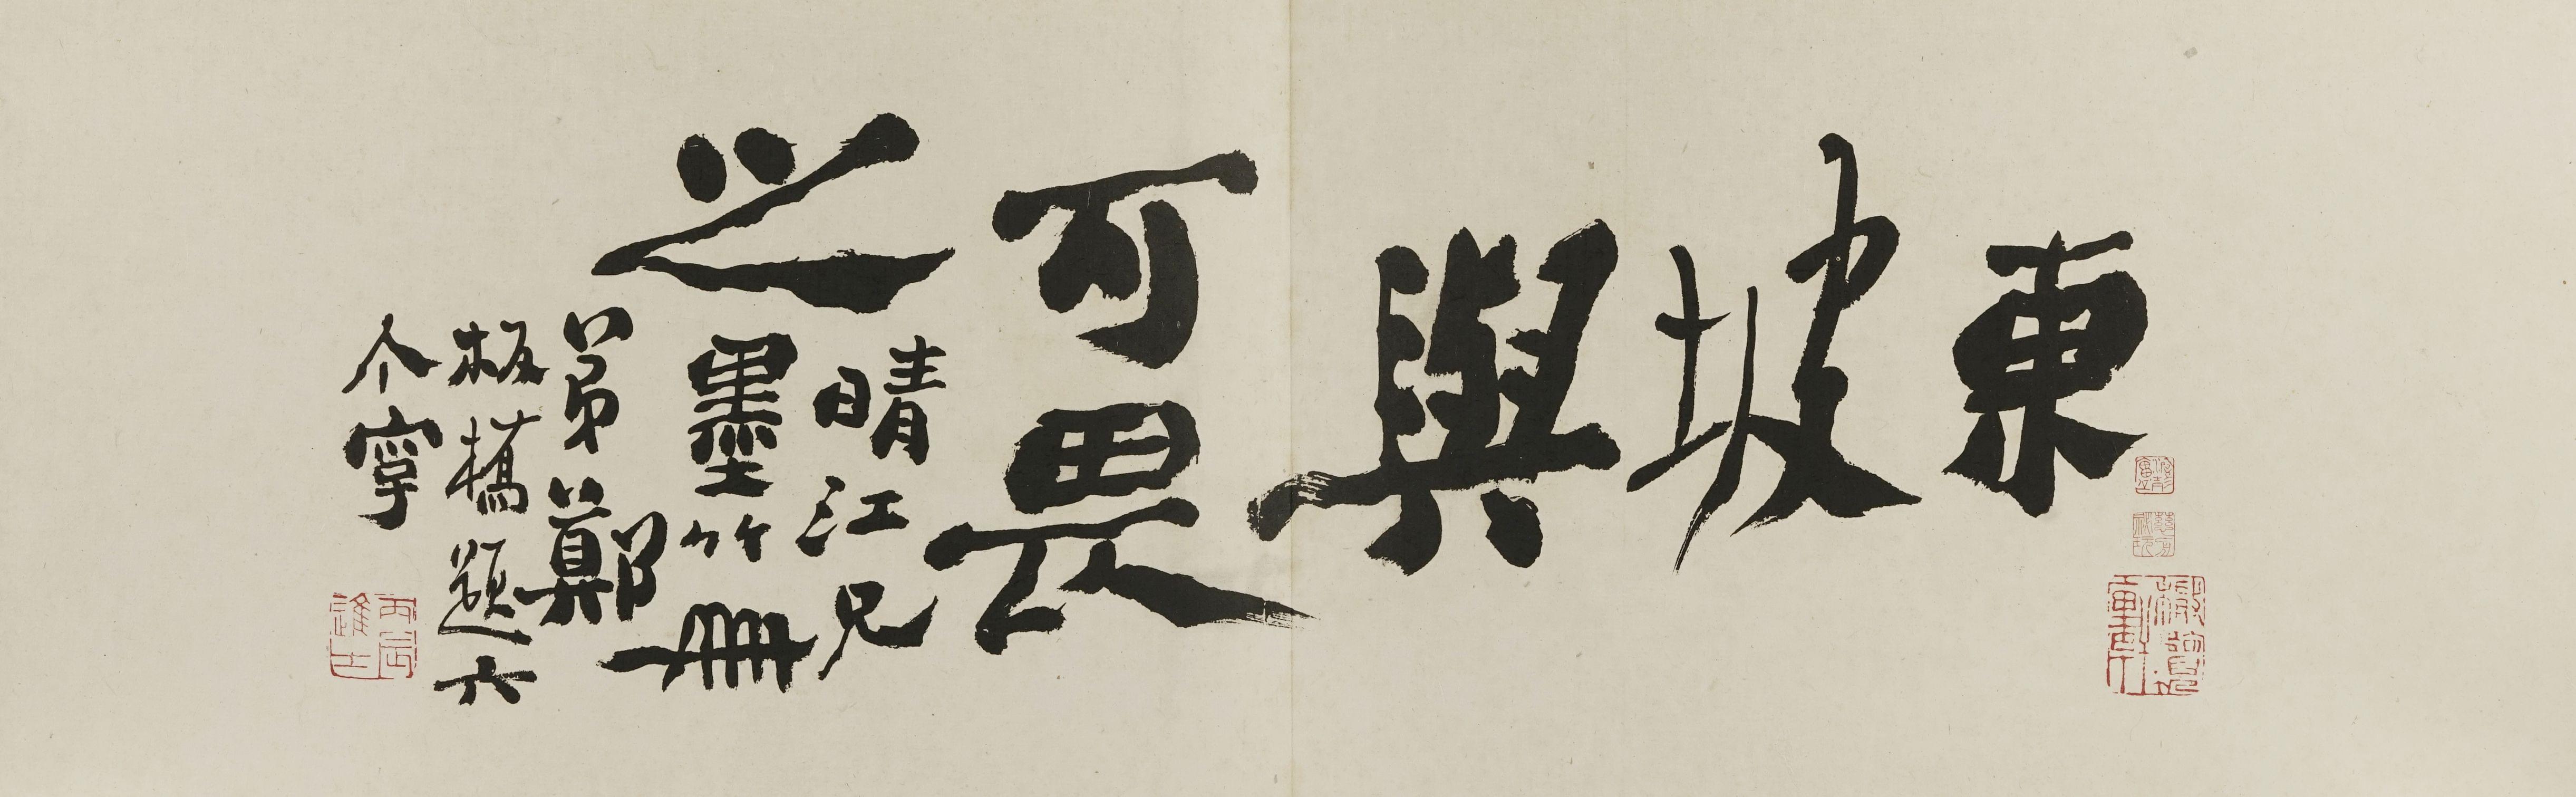 東
坡
與
可畏
之
晴江兄
墨竹冊
弟鄭
板橋題六
个字
丙辰
進士